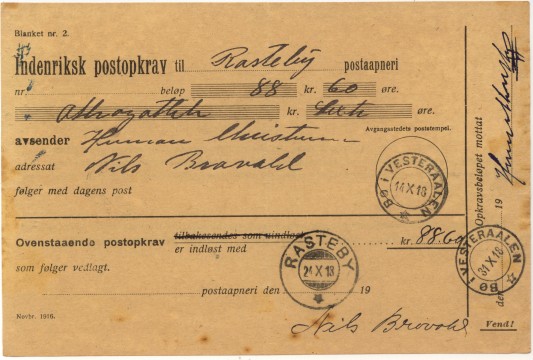 Blanket nr. 2.
Indenriksk postopkrav til Rasteby postaapneri
nr. beløp 88 kr. 60 øre.
kr. øre.
avsender Herman
Avgangsstedets poststempel.
adressat Nils Brovold
følger med dagens post
BØ I VESTERAALEN
14 X 18
Ovenstaaende postopkrav tilbakesendes som uindløst kr. 88.60
er indløst med
som følger vedlagt.
RASTEBY
24 X 18
postaapneri den 19
Nils Brovold
Novbr. 1916.
Opkrævsbeløpet mottat
den 19
BØ I VESTERAALEN
31 X 18
Vend!